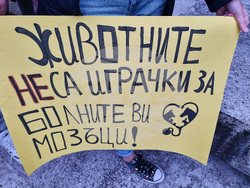 ЖИВОТНИТЕ
НЕ СА ИГРАЧКИ ЗА
БОЛНИТЕ ВИ
МОЗЪЦИ!